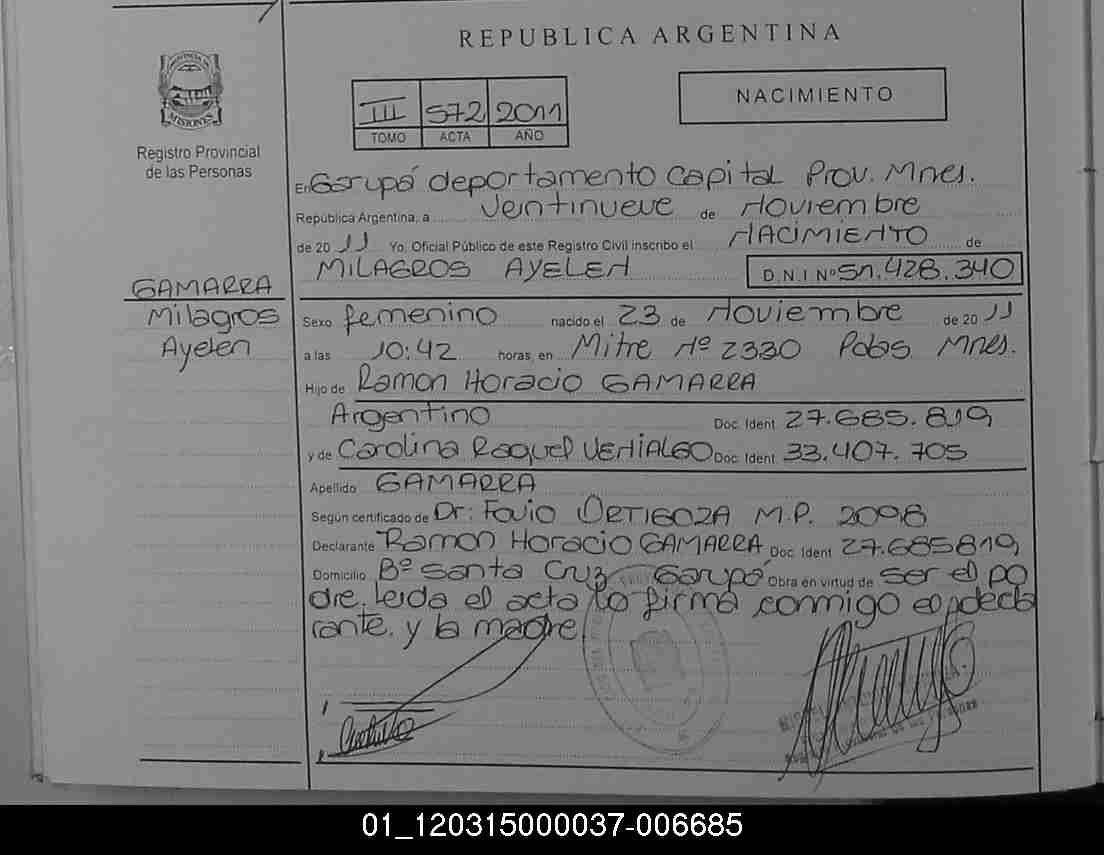 REPUBLICA ARGENTINA
PROVINCIA DE
MISIONES
Registro Provincial
de las Personas
III 572 2011
TOMO ACTA AÑO
NACIMIENTO
En Garupá departamento Capital Prov. Mnes.
República Argentina, a Veintinueve de Noviembre
de 20 11 Yo, Oficial Público de este Registro Civil inscribo el NACIMIENTO de
MILAGROS AYELEN D.N.I Nº 51.428.340
GAMARRA
Milagros
Ayelen
Sexo femenino nacido el 23 de Noviembre de 20 11
a las 10:42 horas, en Mitre Nº 2330 Pdas Mnes.
Hijo de Ramon Horacio GAMARRA
Argentino Doc. Ident. 27.685.819
y de Carolina Raquel VENIALGO Doc. Ident. 33.407.705
Apellido GAMARRA
Según certificado de Dr: Favio ORTIGOZA M.P. 2098
Declarante Ramon Horacio GAMARRA Doc. Ident 27.685819
Domicilio Bº Santa Cruz Garupá Obra en virtud de ser el pa
dre. Leida el acta la firma conmigo el decla
rante. y la madre
01_120315000037-006685